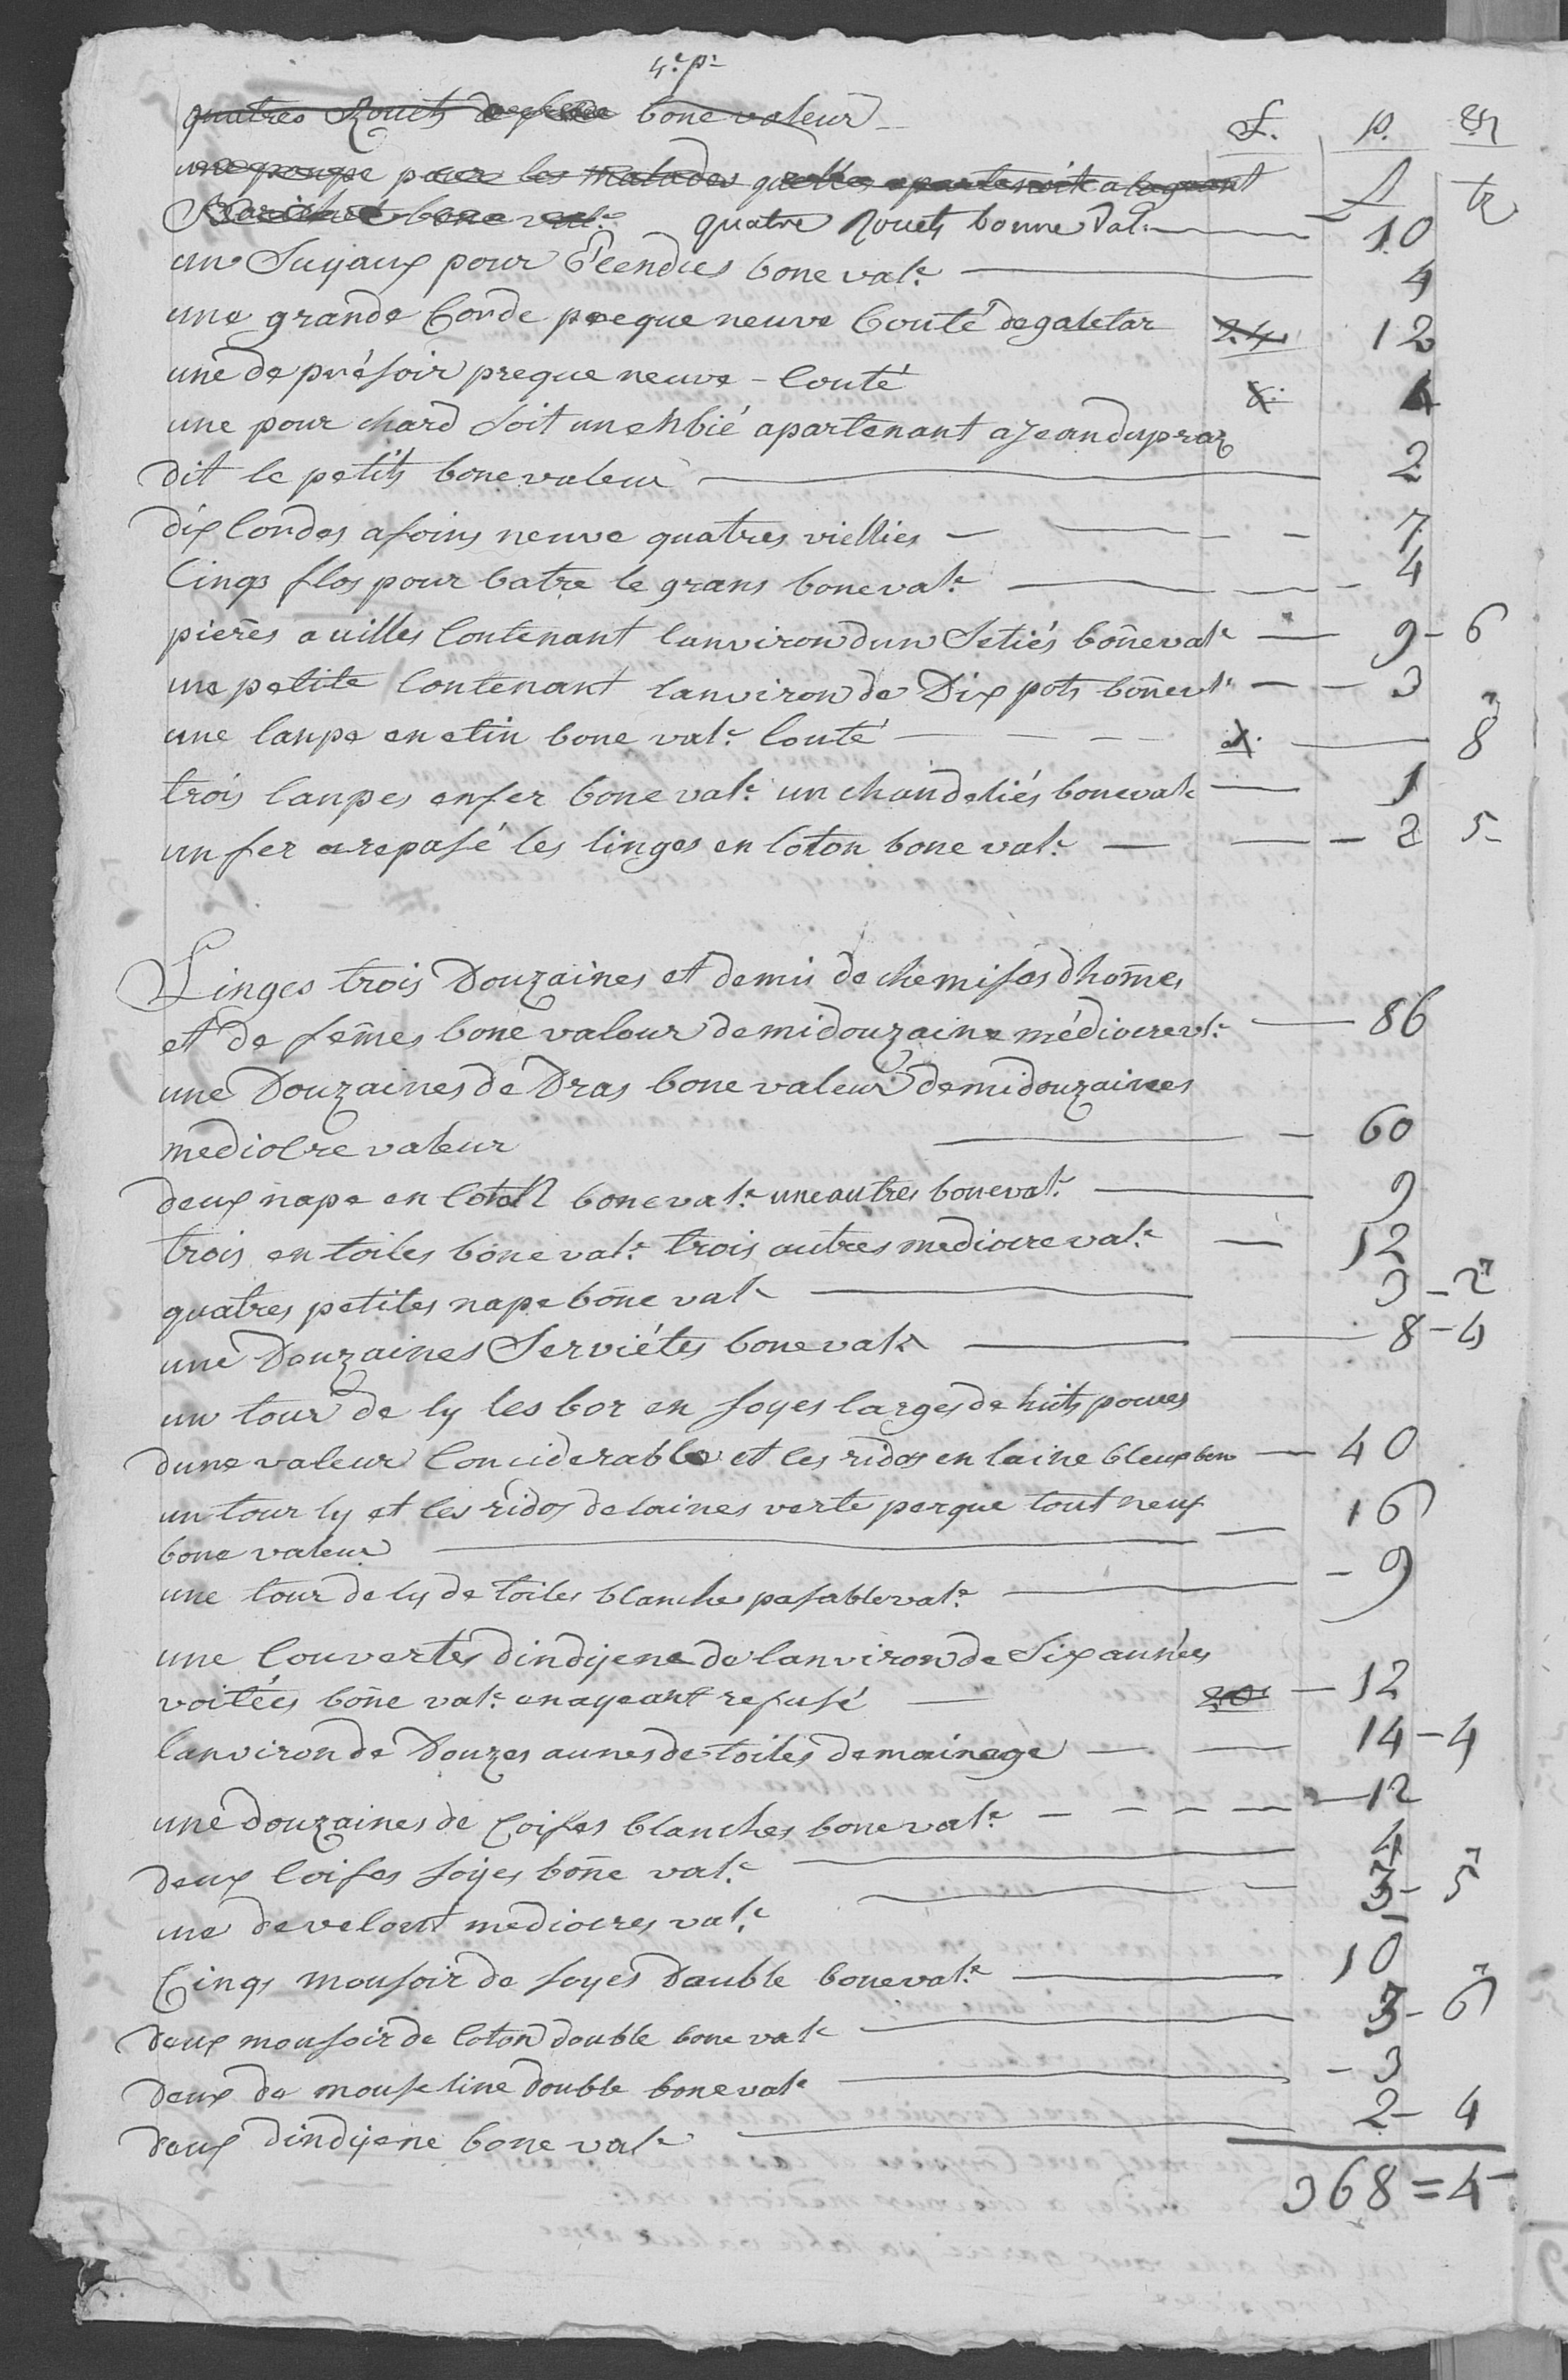 4.e p.
quatres Rouets bone valeur
£. p. 
une ponpe pour les malades quelles apartenoit a
bone val.e quatre Rouets bonne Val. 10
un Tuyaux pour bone val.e 4
une grande Corde preque neuve Couté de galetar 24 12
une de présoir preque neuve - Couté 8. 4
une pour chard soit un apartenant a Jean dupraz
dit le petits bone valeur 2
dix Cordes a foins neuve quatres viellies 7
Cinqs flos pour batre le grans bone val.e 4
pierres a uilles Contenant lanviron dun Setiés bone val.e 9 - 6
une petite Contenant lanviron de Dix pots bone vl.e 3
une lanpe en etin bone val.e Couté 8
trois lanpes en fer bone val.e un chandeliés bone val.e 1
un fer a repasé les linges en loton bone val.e 2 5
Linges trois Douzaines et demis de chemises dhomes
et de femes bone valour demidouzaine médiocre vl.e 86
une Douzaines de Dras bone valeur demidouzaines
mediocre valeur 60
deux nape en Coton bone val.e une autres bone val.e 9
trois en toiles bone val.e trois autres mediocre val.e 12
quatres petites nape bone val.e 3 - 2
une Douzaines Serviétes bone val.e 8 - 4
un tour de ly les bor en soyes larges de huits pouces
dune valeur Conciderable et les ridos en laine bleux bon 40
un tour ly et les ridos de laines verte perque tout neuf 16
bone valeur
une tour de ly de toiles blanches pasable val.e 9
une Couvertes dindijene de lanviron de Six aunées
voitées bone val.e en ayeant refusé 20 12
lanviron de Douzes aunes de toiles de mainage 14 - 4
une douzaines de Coifes blanches bone val.e 12
deux Coifes soyes bone val.e 4
une de velout mediocres val.e 3 - 5
Cinqs mousoir de soyes Double bone val.e 10
deux mousoir de Coton double bone val.e 3 - 6
deux de mouseline double bone val.e 3
deux dindijene bone val.e 2 - 4
368 = 4